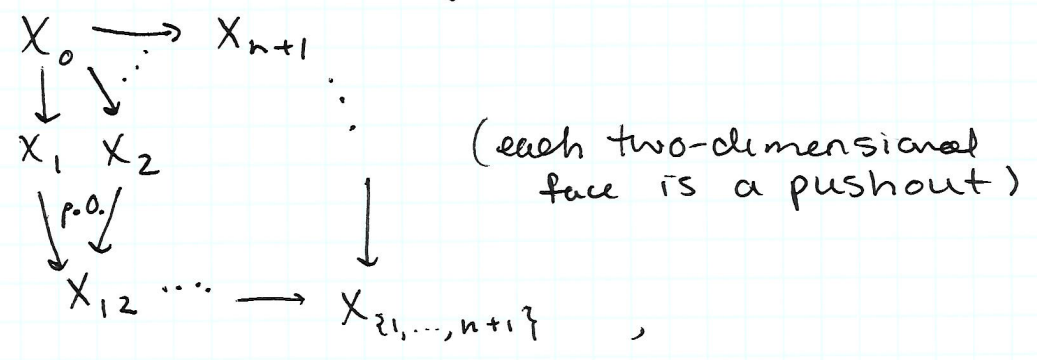 X₀ → Xₙ₊₁
X₁ X₂
(each two-dimensional
face is a pushout)
p.o.
X₁₂ .... → X_{{1,...,n+1}} ,